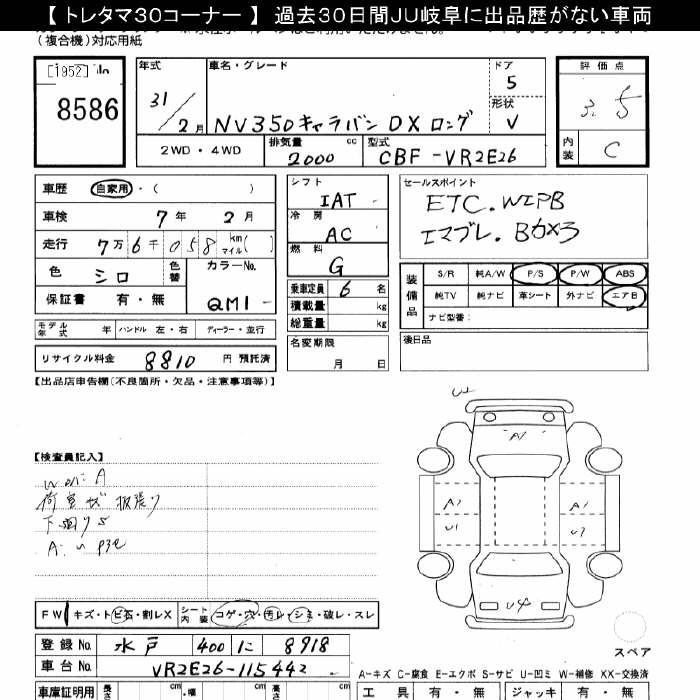 【 トレタマ30コーナー 】 過去30日間JU岐阜に出品歴がない車両
(複合機)対応用紙
[1952] No
8586
年式 31 / 2月
車名・グレード NV350キャラバン DX ロング
ドア 5
形状 V
評価点 3.5
内装 C
2WD ・ 4WD
排気量 2000 cc
型式 CBF -VR2E26
車歴 自家用・( )
車検 7 年 2 月
走行 7万 6千 058 km マイル( )
色 シロ 色替
カラーNo. QM1 -
保証書 有・無
モデル年式 年 ハンドル 左・右 ディーラー・並行
リサイクル料金 8810 円 預託済
シフト IAT
冷房 AC
燃料 G
乗車定員 6 名
積載量 kg
総重量 kg
名変期限 月 日
セールスポイント
ETC.
エマブレ.
装備品 S/R 純A/W P/S P/W ABS
純TV 純ナビ 革シート 外ナビ エアB
ナビ型番:
後日品
【出品店申告欄(不良箇所・欠品・注意事項等)】
【検査員記入】
荷室 板張り
FW キズ・トビ石・割レX シート内装 コゲ・穴・汚レ・シミ・破レ・スレ
登録No. 水戸 400 に 8918
車台No. VR2E26-115442
車庫証明用 長さ cm ・幅 cm 高さ cm
U2
A1
A1
U1
U4
スペア
A-キズ C-腐食 E-エクボ S-サビ U-凹ミ W-補修 XX-交換済
工具 有・無 ジャッキ 有・無